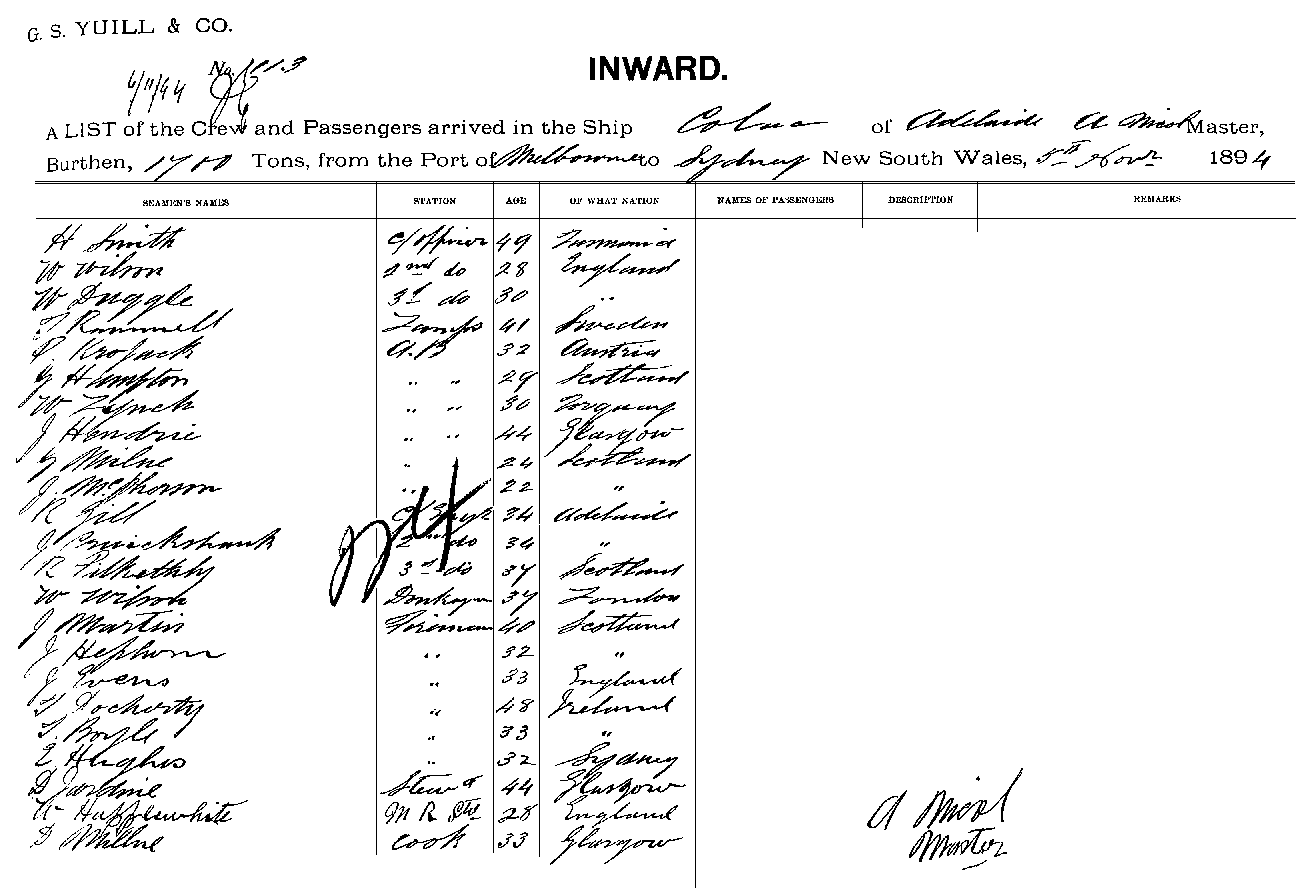 G. S. YUILL & CO.
6/11/94
INWARD.
A LIST of the Crew and Passengers arrived in the Ship Colma of Adelaide A Nicol Master,
Burthen, 1700 Tons, from the Port of Melbourne to Sydney New South Wales, 5th Novr 1894
SEAMEN'S NAMES STATION AGE OF WHAT NATION NAMES OF PASSENGERS DESCRIPTION REMARKS
H Smith c/officer 49 Tasmania
W Wilson 2nd do 28 England
W Duggle 3d do 30 "
T Rammell Lamps 41 Sweden
P. Krojack A.B 32 Austria
G Hampton " " 29 Scotland
W Lynch " " 30 Torquay
J Hendrie " " 44 Glasgow
G Milne " 24 Scotland
J. McPherson " 22 "
R Gill 34 Adelaide
J Cruickshank 2nd do 34 "
R Pilkethly 3rd do 37 Scotland
W Wilson Donkeyman 37 London
J Martin Fireman 40 Scotland
J Hepburn " 32 "
J Evens " 33 England
T Docherty " 48 Ireland
T. Boyle " 33 "
E Hughes " 32 Sydney
D Jardine Stewd 44 Glasgow
W Happlewhite M R Std 28 England
D Millne Cook 33 Glasgow
A Nicol
Master